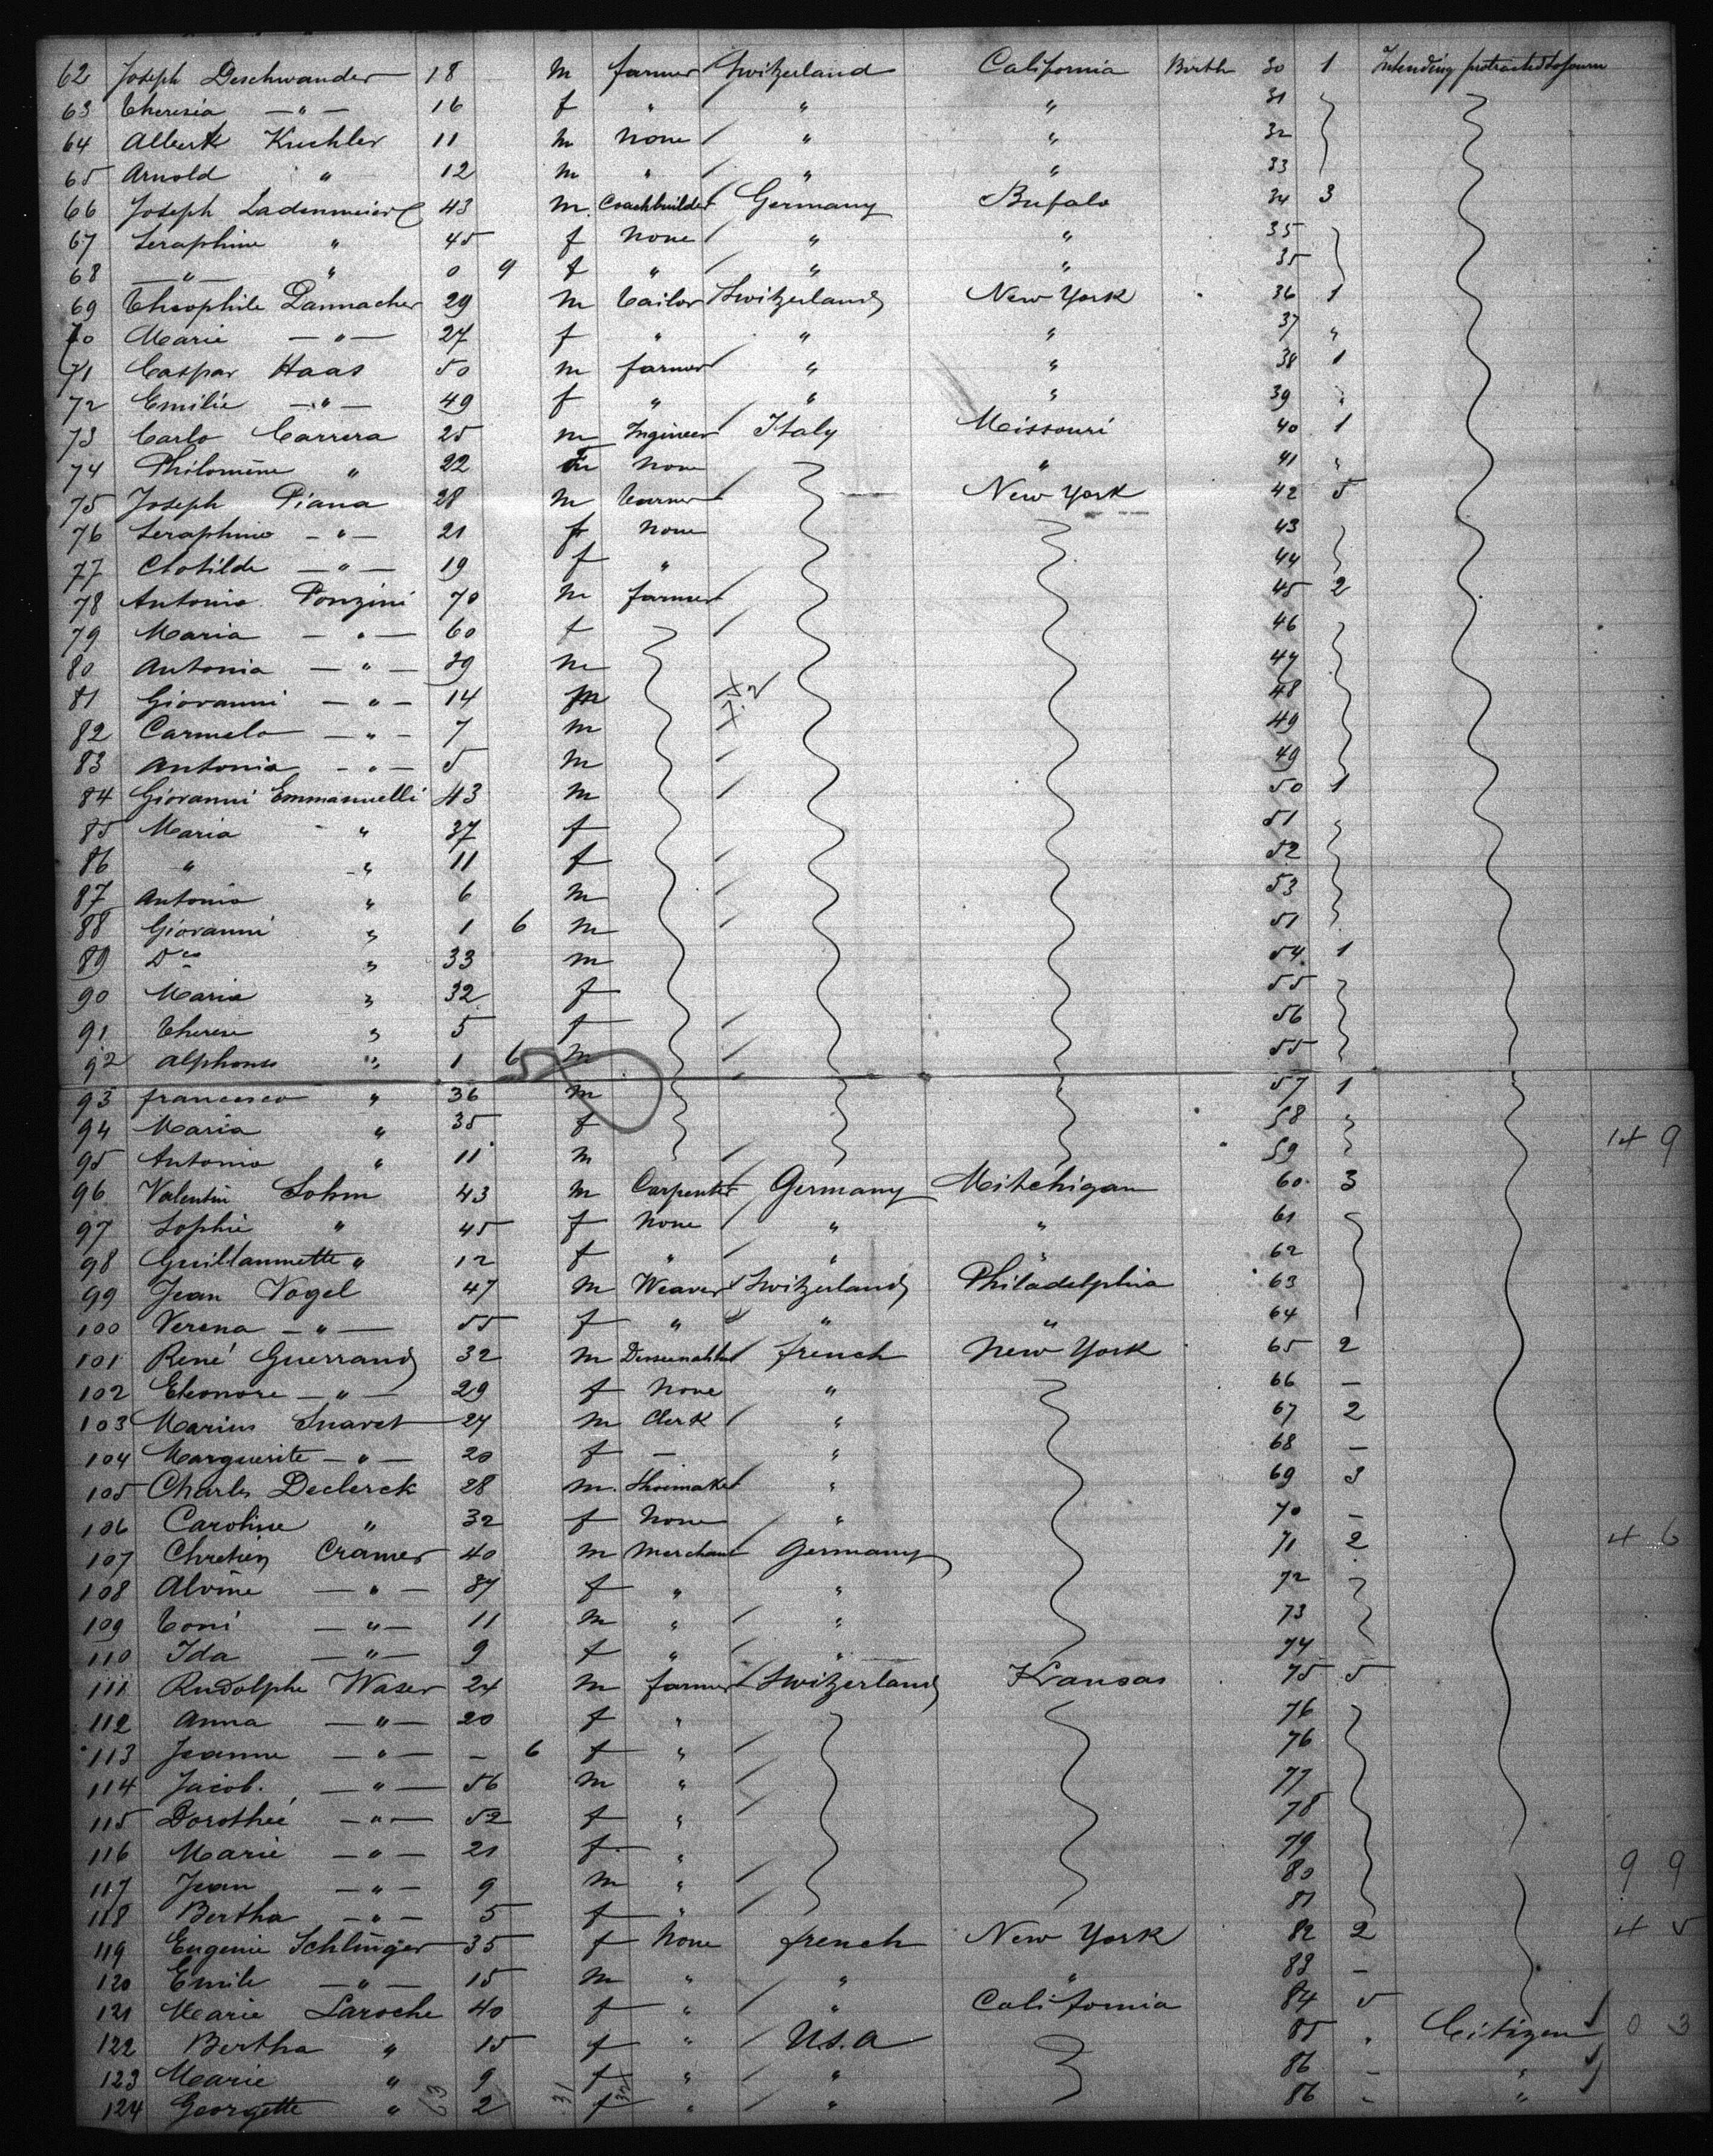 62 Joseph Deschwander 18 m farmer Switzerland California Birth 30 1 Intending protracted sojourn
63 Theresia —"— 16 f " " " 31
64 Albert Kuchler 11 m none " " 32
65 Arnold " 12 m " " " 33
66 Joseph Ladenmeier 43 m. Coachbuilder Germany Bufalo 34 3
67 Seraphine " 45 f none " " 35
68 —"— " 0 9 f " " " 35
69 Theophile Dannacher 29 m Tailor Switzerland New York 36 1
70 Marie —"— 27 f " " " 37 "
71 Caspar Haas 50 m farmer " " 38 1
72 Emilie —"— 49 f " " " 39 "
73 Carlo Carrera 25 m Ingineer Italy Missouri 40 1
74 Philomène " 22 f none " 41 "
75 Joseph Piana 28 m New York 42 5
76 Seraphino —"— 21 f none 43
77 Clotilde —"— 19 f " 44
78 Antonio Ponzini 70 m farmer 45 2
79 Maria —"— 60 f 46
80 Antonia —"— 39 m 47
81 Giovanni —"— 14 m 48
82 Carmelo —"— 7 m 49
83 Antonia —"— 5 m 49
84 Giovanni Emmanuelli 43 m 50 1
85 Maria " 37 f 51
86 " " 11 f 52
87 Antonio " 6 m 53
88 Giovanni " 1 6 m 51
89 Do " 33 m 54 1
90 Maria " 32 f 55
91 Therese " 5 f 56
92 Alphonse " 1 6 m 55
93 francesco " 36 m 57 1
94 Maria " 35 f 58 "
95 Antonio " 11 m 59 "
14 9
96 Valentin Sohm 43 m Carpenter Germany Mitchigan 60 3
97 Sophie " 45 f none " " 61
98 Guillaumette " 12 f " " " 62
99 Jean Vogel 47 m Weaver Switzerland Philadelphia 63
100 Verena —"— 55 f " " " 64
101 René Guerrand 32 m french New York 65 2
102 Eleonore —"— 29 f none " 66 —
103 Marius Suaret 27 m Clerk " 67 2
104 Marguerite —"— 20 f — " 68 —
105 Charles Declerck 28 m. Shoemaker " 69 3
106 Caroline " 32 f None " 70 —
107 Chretien Cramer 40 m merchant Germany 71 2
4 6
108 Alvine —"— 37 f " " 72
109 Toni —"— 11 m " " 73
110 Ida —"— 9 f " " 74
111 Rudolphe Waser 24 m farmer Switzerland Kansas 75 5
112 Anna —"— 20 f " 76
113 Jeanne —"— — 6 f " 76
114 Jacob. —"— 56 m " 77
115 Dorothée —"— 52 f " 78
116 Marie —"— 21 f " 79
117 Jean —"— 9 m " 80
9 9
118 Bertha —"— 5 f " 81
119 Eugenie Schlinger 35 f None french New York 82 2
4 5
120 Emile —"— 15 m " " " 83 —
121 Marie Laroche 40 f " " California 84 5
122 Bertha " 15 f " U.S.A 85 " Citizen 0 3
123 Marie " 9 f " " 86 – "
124 Georgette " 2 f " " 86 – "
63 31 32